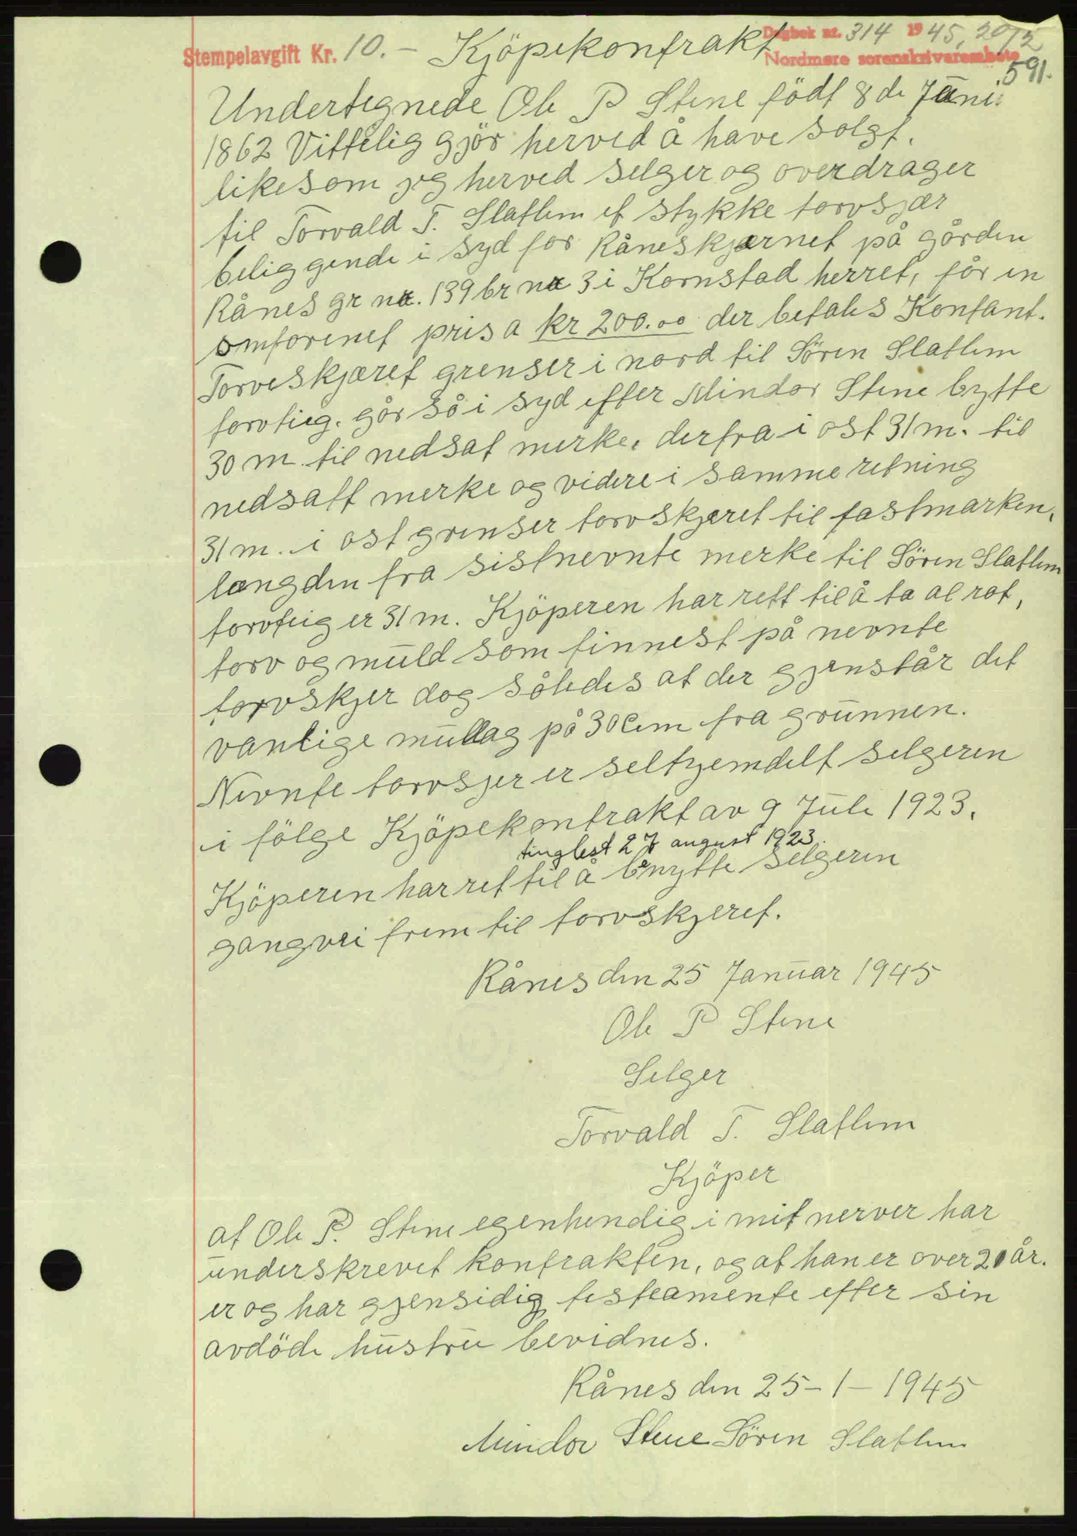 Stempelavgift Kr. 10.-
Kjöpekontrakt
Dagbok nr. 314 1945, 20/2
Nordmøre sorenskriverembete
591.
Undertegnede Ole P Stene födt 8 de Juni
1862 Vittelig gjör herved å have solgt,
likesom jeg herved selger og overdrager
til Torvald T. Slatlem et stykke torvsjær
beliggende i syd for Råneskjærnet på gården
Rånes gr nr. 139 br nr 3 i Kornstad herret, får en
omforenet pris a kr 200.00 der betales Kontant.
Torveskjæret grenser i nord til Sören Slatlem
torvtieg. går så i syd efter Mindor Stene bytte
30 m til nedsat merke, derfra i ost 31 m. til
nedsatt merke og videre i samme retning
31 m. i ost grenser torvskjeret til fastmarken,
længden fra sistnevnte merke til Sören Slatlem
torvteig er 31 m. Kjöperen har rett til å ta al rot,
torv og muld som finnest på nevnte
torvskjer dog således at der gjenstår det
vanlige mullag på 30 cm fra grunnen.
Nevnte torvsjer er seltjemdelt selgeren
i fölge Kjöpekontrakt av 9 Juli 1923,
tinglest 27 august 1923.
Kjöperen har ret til å benytte selgeren
gangvei frem til torvskjeret.
Rånes den 25 Januar 1945
Ole P Stene
Selger
Torvald T. Slatlem
Kjöper
at Ole P. Stene egenhendig i mit nerver har
underskrevet kontrakten, og at han er over 21 år.
er og har gjensidig testeamente efter sin
avdöde hustru bevidnes.
Rånes den 25-1-1945
Mindor Stene Sören Slatlem